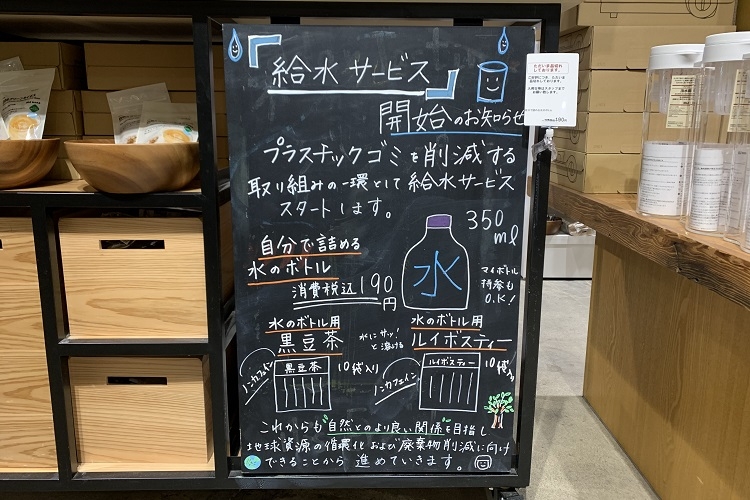 給水サービス
開始のお知らせ
プラスチックゴミを削減する
取り組みの一環として給水サービス
スタートします。
350
ml
自分で詰める
水のボトル
消費税込190円
水
マイボトル
持参も
O.K!
水のボトル用
黒豆茶
水にサッ!
と溶ける
水のボトル用
ルイボスティー
ノンカフェイン
黒豆茶
10袋入り
ノンカフェイン
ルイボスティー
10袋入り
これからも"自然とのより良い関係"を目指し
地球資源の循環化および廃棄物削減に向け
できることから進めていきます。
ただいま品切れ
しております。